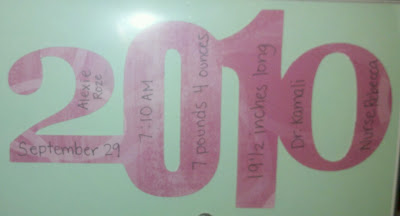 2010
Alexie
Roze
September 29
7:10 AM
7 pounds 4 ounces
19 1/2 inches long
Dr. Kamali
Nurse Rebecca